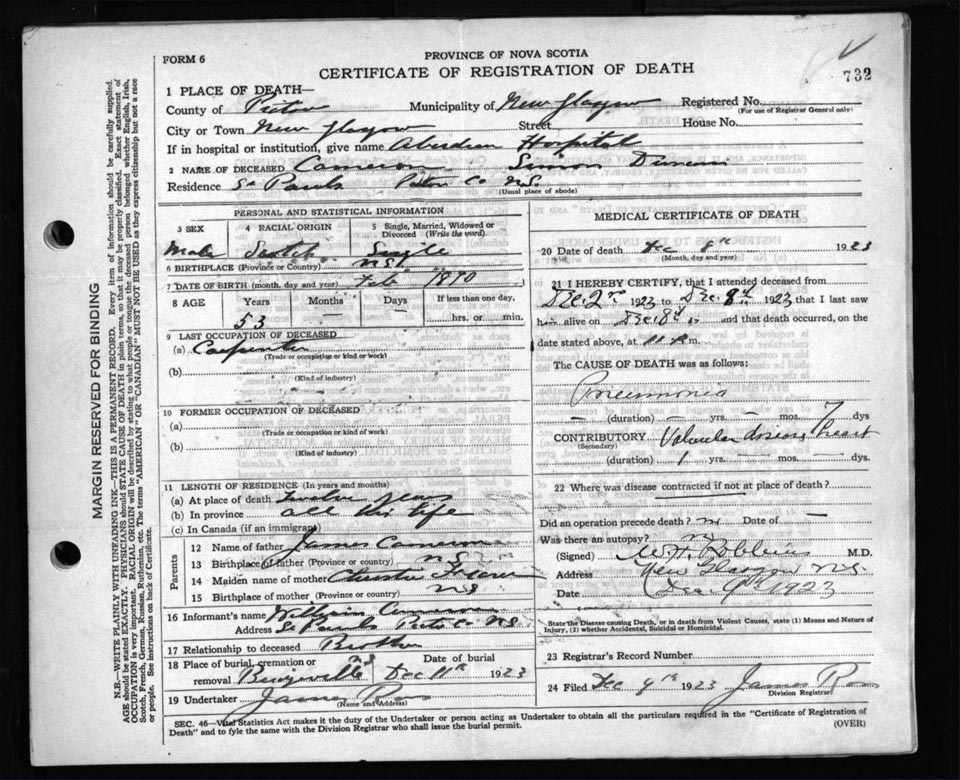 FORM 6
PROVINCE OF NOVA SCOTIA
CERTIFICATE OF REGISTRATION OF DEATH
732
1 PLACE OF DEATH—
County of Pictou Municipality of New Glasgow Registered No.
(For use of Registrar General only)
City or Town New Glasgow Street House No.
If in hospital or institution, give name Aberdeen Hospital
2 NAME OF DECEASED Cameron Simon Duncan
Residence St Pauls Pictou Co N.S.
(Usual place of abode)
PERSONAL AND STATISTICAL INFORMATION
3 SEX 4 RACIAL ORIGIN 5 Single, Married, Widowed or Divorced (Write the word)
Male Scotch Single
6 BIRTHPLACE (Province or Country) N.S.
7 DATE OF BIRTH (month, day and year) Feb 1870
8 AGE Years Months Days If less than one day,
53 — — hrs. or min.
9 LAST OCCUPATION OF DECEASED
(a) Carpenter
(Trade or occupation or kind or work)
(b)
(Kind of industry)
10 FORMER OCCUPATION OF DECEASED
(a)
(Trade or occupation or kind of work)
(b)
(Kind of industry)
11 LENGTH OF RESIDENCE (In years and months)
(a) At place of death twelve years
(b) In province all his life
(c) In Canada (if an immigrant)
Parents
12 Name of father James Cameron
13 Birthplace of father (Province or country) N.S.
14 Maiden name of mother Christie
15 Birthplace of mother (Province or country) NS
16 Informant's name William Cameron
Address St Pauls Pictou Co NS
17 Relationship to deceased Brother
18 Place of burial, cremation or removal Bridgeville NS Date of burial Dec 11th 1923
19 Undertaker James Ross
(Name and Address)
MEDICAL CERTIFICATE OF DEATH
20 Date of death Dec 8th 1923
(Month, day and year)
21 I HEREBY CERTIFY, that I attended deceased from
Dec. 2nd 1923 to Dec. 8th 1923 that I last saw
him alive on Dec. 8th and that death occurred, on the
date stated above, at 11 P.m.
The CAUSE OF DEATH was as follows:
Pneumonia
— (duration) — yrs. — mos. 7 dys
CONTRIBUTORY Valvular disease, heart
(Secondary)
(duration) 1 yrs. — mos. — dys.
22 Where was disease contracted if not at place of death?
Did an operation precede death? no Date of —
Was there an autopsy? no
(Signed) W.H. Robbins M.D.
Address New Glasgow N.S.
Date Dec 9th 1923
State the Disease causing Death, or in death from Violent Causes, state (1) Means and Nature of Injury, (2) whether Accidental, Suicidal or Homicidal.
23 Registrar's Record Number
24 Filed Dec 9th 1923 James Ross
Division Registrar
SEC. 46—Vital Statistics Act makes it the duty of the Undertaker or person acting as Undertaker to obtain all the particulars required in the "Certificate of Registration of
Death" and to fyle the same with the Division Registrar who shall issue the burial permit.
(OVER)
MARGIN RESERVED FOR BINDING
N.B.—WRITE PLAINLY WITH UNFADING INK—THIS IS A PERMANENT RECORD. Every item of information should be carefully supplied.
AGE should be stated EXACTLY. PHYSICIANS should STATE CAUSE OF DEATH in plain terms, so that it may be properly classified. Exact statement of
OCCUPATION is very important. RACIAL ORIGIN will be described by stating to what people or tongue the deceased person belonged whether English, Irish,
Scotch, French, German, Russian, Ruthenian, etc. The terms "AMERICAN" OR "CANADIAN" MUST NOT BE USED as they express citizenship but not a race
or people. See instructions on back of Certificate.